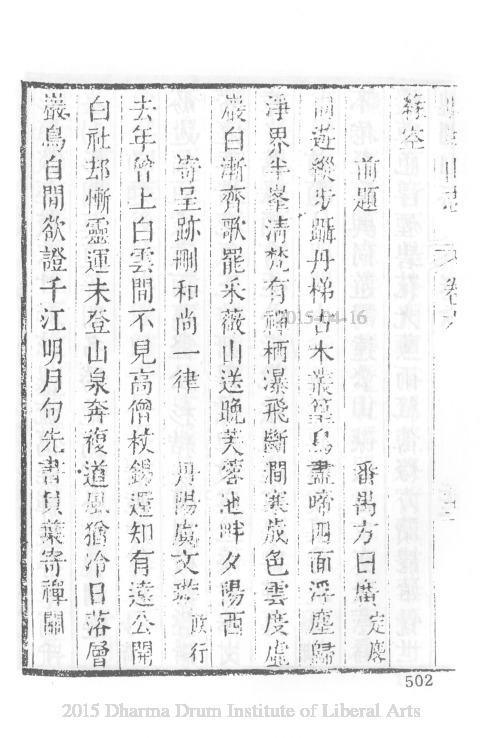 山志 卷六
蘇本
前題 番禺方曰廣定慶
同遊縱步躡丹梯古木叢篁鳥盡啼四面浮塵歸
淨界半峯清梵有禪栖瀑飛斷澗寒歲色雲度虛
巖白漸齊歌罷采薇山送晚芙蓉池畔夕陽西
寄呈跡刪和尚一律 丹陽 文 行
去年曾上白雲間不見高僧杖錫還知有遠公開
白社却慚靈運未登山泉奔複道風猶冷日落層
巖鳥自閒欲證千江明月句先書貝葉寄禪關
502
2015-04-16
2015 Dharma Drum Institute of Liberal Arts